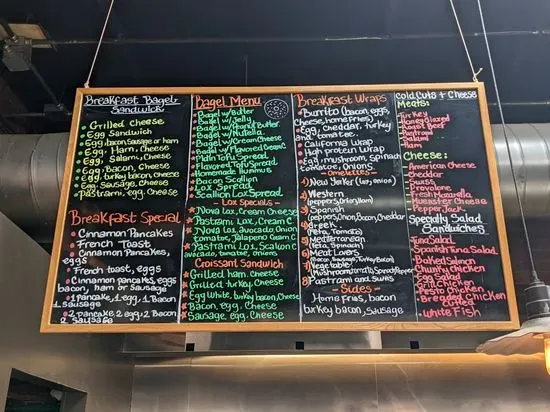 Breakfast Bagel
Sandwich
Grilled cheese
Egg Sandwich
Egg, bacon, sausage or ham
Ham, Cheese
Egg, Salami, Cheese
Egg, Bacon, Cheese
Egg, turkey bacon, cheese
Egg, Sausage, Cheese
Pastrami, egg, Cheese
Breakfast Special
Cinnamon Pancakes
French Toast
Cinnamon Pancakes,
eggs
French toast, eggs
Cinnamon pancakes, eggs
bacon, ham or Sausage
1 Pancake, 1 egg, 1 Bacon
1 Sausage
2 Pancake 2 egg, 2 Bacon
2 Sausage
Bagel Menu
Bagel w/Butter
Bagel w/Jelly
Bagel w/Peanut Butter
Bagel w/Nutella
Bagel w/Cream Cheese
Bagel w/Flavored
Plain Tofu Spread
Flavored Tofu Spread
Homemade Hummus
Bacon Scallion
Lox Spread
Scallion Lox Spread
- Lox Specials -
Nova Lox, Cream Cheese
Pastrami Lox, Cream C.
Nova Lox, Avocado, Onion
tomatoe, Jalapeno Cream C
Pastrami Lox, Scallion C
avocado, tomatoe, onions
Croissant Sandwich
Grilled ham, Cheese
Grilled turkey, Cheese
Egg White, turkey bacon, Cheese
Bacon, egg, Cheese
Sausage, Egg, Cheese
Breakfast Wraps
Burrito (bacon, eggs,
Cheese, homefries)
Egg, cheddar, turkey
and
California Wrap
High protein Wrap
Egg, mushroom, spinach
tomatoe, onions
- Omelettes -
1) New Yorker (lox, onion)
2) Western
(peppers, Onion, Ham)
3) Spanish
(peppers, Onion, Bacon, Cheddar)
4) Greek
(Feta, Tomato)
5) Mediterranean
(Feta, Spinach)
6) Meat Lovers
(Bacon, Sausage, Turkey, Ham)
7) Vegetable
8) Pastrami and Swiss
- Sides -
Home fries, bacon
turkey bacon, Sausage
Cold Cuts + Cheese
Meats:
Turkey
Honey Glazed
Roast Beef
Pastrami
Salami
Ham
Cheese:
American Cheese
Cheddar
Swiss
Provolone
Fresh Mozzarella
Muenster Cheese
Pepper Jack
Specialty Salad
Sandwiches
Tuna Salad
Spanish Tuna Salad
Baked Salmon
Chunky Chicken
Egg Salad
Grill Chicken
Pesto Chicken
Breaded Chicken
Cutled
White Fish